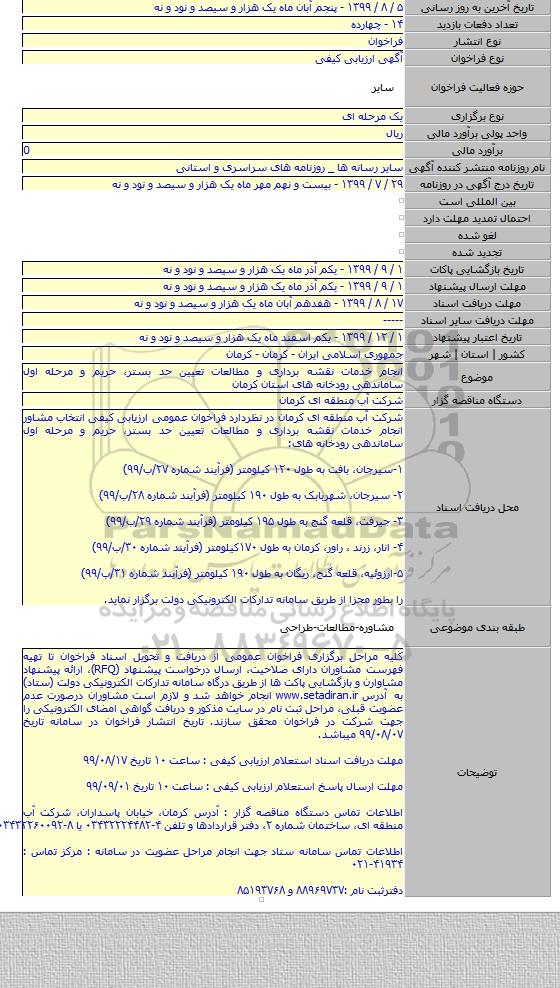 تاریخ آخرین به روز رسانی ۵ / ۸ / ۱۳۹۹ - پنجم آبان ماه یک هزار و سیصد و نود و نه
تعداد دفعات بازدید ۱۴ - چهارده
نوع انتشار فراخوان
نوع فراخوان آگهی ارزیابی کیفی
حوزه فعالیت فراخوان سایر
نوع برگزاری یک مرحله ای
واحد پولی برآورد مالی ریال
برآورد مالی 0
نام روزنامه منتشر کننده آگهی سایر رسانه ها _ روزنامه های سراسری و استانی
تاریخ درج آگهی در روزنامه ۲۹ / ۷ / ۱۳۹۹ - بیست و نهم مهر ماه یک هزار و سیصد و نود و نه
بین المللی است
احتمال تمدید مهلت دارد
لغو شده
تجدید شده
تاریخ بازگشایی پاکات ۱ / ۹ / ۱۳۹۹ - یکم آذر ماه یک هزار و سیصد و نود و نه
مهلت ارسال پیشنهاد ۱ / ۹ / ۱۳۹۹ - یکم آذر ماه یک هزار و سیصد و نود و نه
مهلت دریافت اسناد ۱۷ / ۸ / ۱۳۹۹ - هفدهم آبان ماه یک هزار و سیصد و نود و نه
مهلت دریافت سایر اسناد -----
تاریخ اعتبار پیشنهاد ۱ / ۱۲ / ۱۳۹۹ - یکم اسفند ماه یک هزار و سیصد و نود و نه
کشور | استان | شهر جمهوری اسلامی ایران - کرمان - کرمان
موضوع انجام خدمات نقشه برداری و مطالعات تعیین حد بستر، حریم و مرحله اول
ساماندهی رودخانه های استان کرمان
دستگاه مناقصه گزار شرکت آب منطقه ای کرمان
محل دریافت اسناد
شرکت آب منطقه ای کرمان در نظردارد فراخوان عمومی ارزیابی کیفی انتخاب مشاور
انجام خدمات نقشه برداری و مطالعات تعیین حد بستر، حریم و مرحله اول
ساماندهی رودخانه های:
۱-سیرجان، بافت به طول ۱۲۰ کیلومتر (فرآیند شماره ۲۷/ب/۹۹)
۲- سیرجان، شهربابک به طول ۱۹۰ کیلومتر (فرآیند شماره ۲۸/ب/۹۹)
۳- جیرفت، قلعه گنج به طول ۱۹۵ کیلومتر (فرآیند شماره ۲۹/ب/۹۹)
۴- انار، زرند ، راور، کرمان به طول ۱۷۰کیلومتر (فرآیند شماره ۳۰/ب/۹۹)
۵-ارزوئیه، قلعه گنج، ریگان به طول ۱۹۰ کیلومتر (فرآیند شماره ۳۱/ب/۹۹)
را بطور مجزا از طریق سامانه تدارکات الکترونیکی دولت برگزار نماید.
ParsNamadData
پایگاه اطلاع رسانی مناقصه و مزایده
۰۲۱-۸۸۳۴۹۶۷۰-۵
طبقه بندی موضوعی مشاوره-مطالعات-طراحی
توضیحات
کلیه مراحل برگزاری فراخوان عمومی از دریافت و تحویل اسناد فراخوان تا تهیه
فهرست مشاوران دارای صلاحیت، ارسال درخواست پیشنهاد (RFQ)، ارائه پیشنهاد
مشاوران و بازگشایی پاکت ها از طریق درگاه سامانه تدارکات الکترونیکی دولت (ستاد)
به آدرس www.setadiran.ir انجام خواهد شد و لازم است مشاوران درصورت عدم
عضویت قبلی، مراحل ثبت نام در سایت مذکور و دریافت گواهی امضای الکترونیکی را
جهت شرکت در فراخوان محقق سازند. تاریخ انتشار فراخوان در سامانه تاریخ
۹۹/۰۸/۰۷ میباشد.
مهلت دریافت اسناد استعلام ارزیابی کیفی : ساعت ۱۰ تاریخ ۹۹/۰۸/۱۷
مهلت ارسال پاسخ استعلام ارزیابی کیفی : ساعت ۱۰ تاریخ ۹۹/۰۹/۰۱
اطلاعات تماس دستگاه مناقصه گزار : آدرس کرمان، خیابان پاسداران، شرکت آب
منطقه ای، ساختمان شماره ۲، دفتر قراردادها و تلفن ۴-۰۳۴۳۲۲۲۴۴۸۲ یا ۸-۰۳۴۳۲۲۶۰۰۹۲
اطلاعات تماس سامانه ستاد جهت انجام مراحل عضویت در سامانه : مرکز تماس :
۰۲۱-۴۱۹۳۴
دفترثبت نام :۸۸۹۶۹۷۳۷ و ۸۵۱۹۳۷۶۸